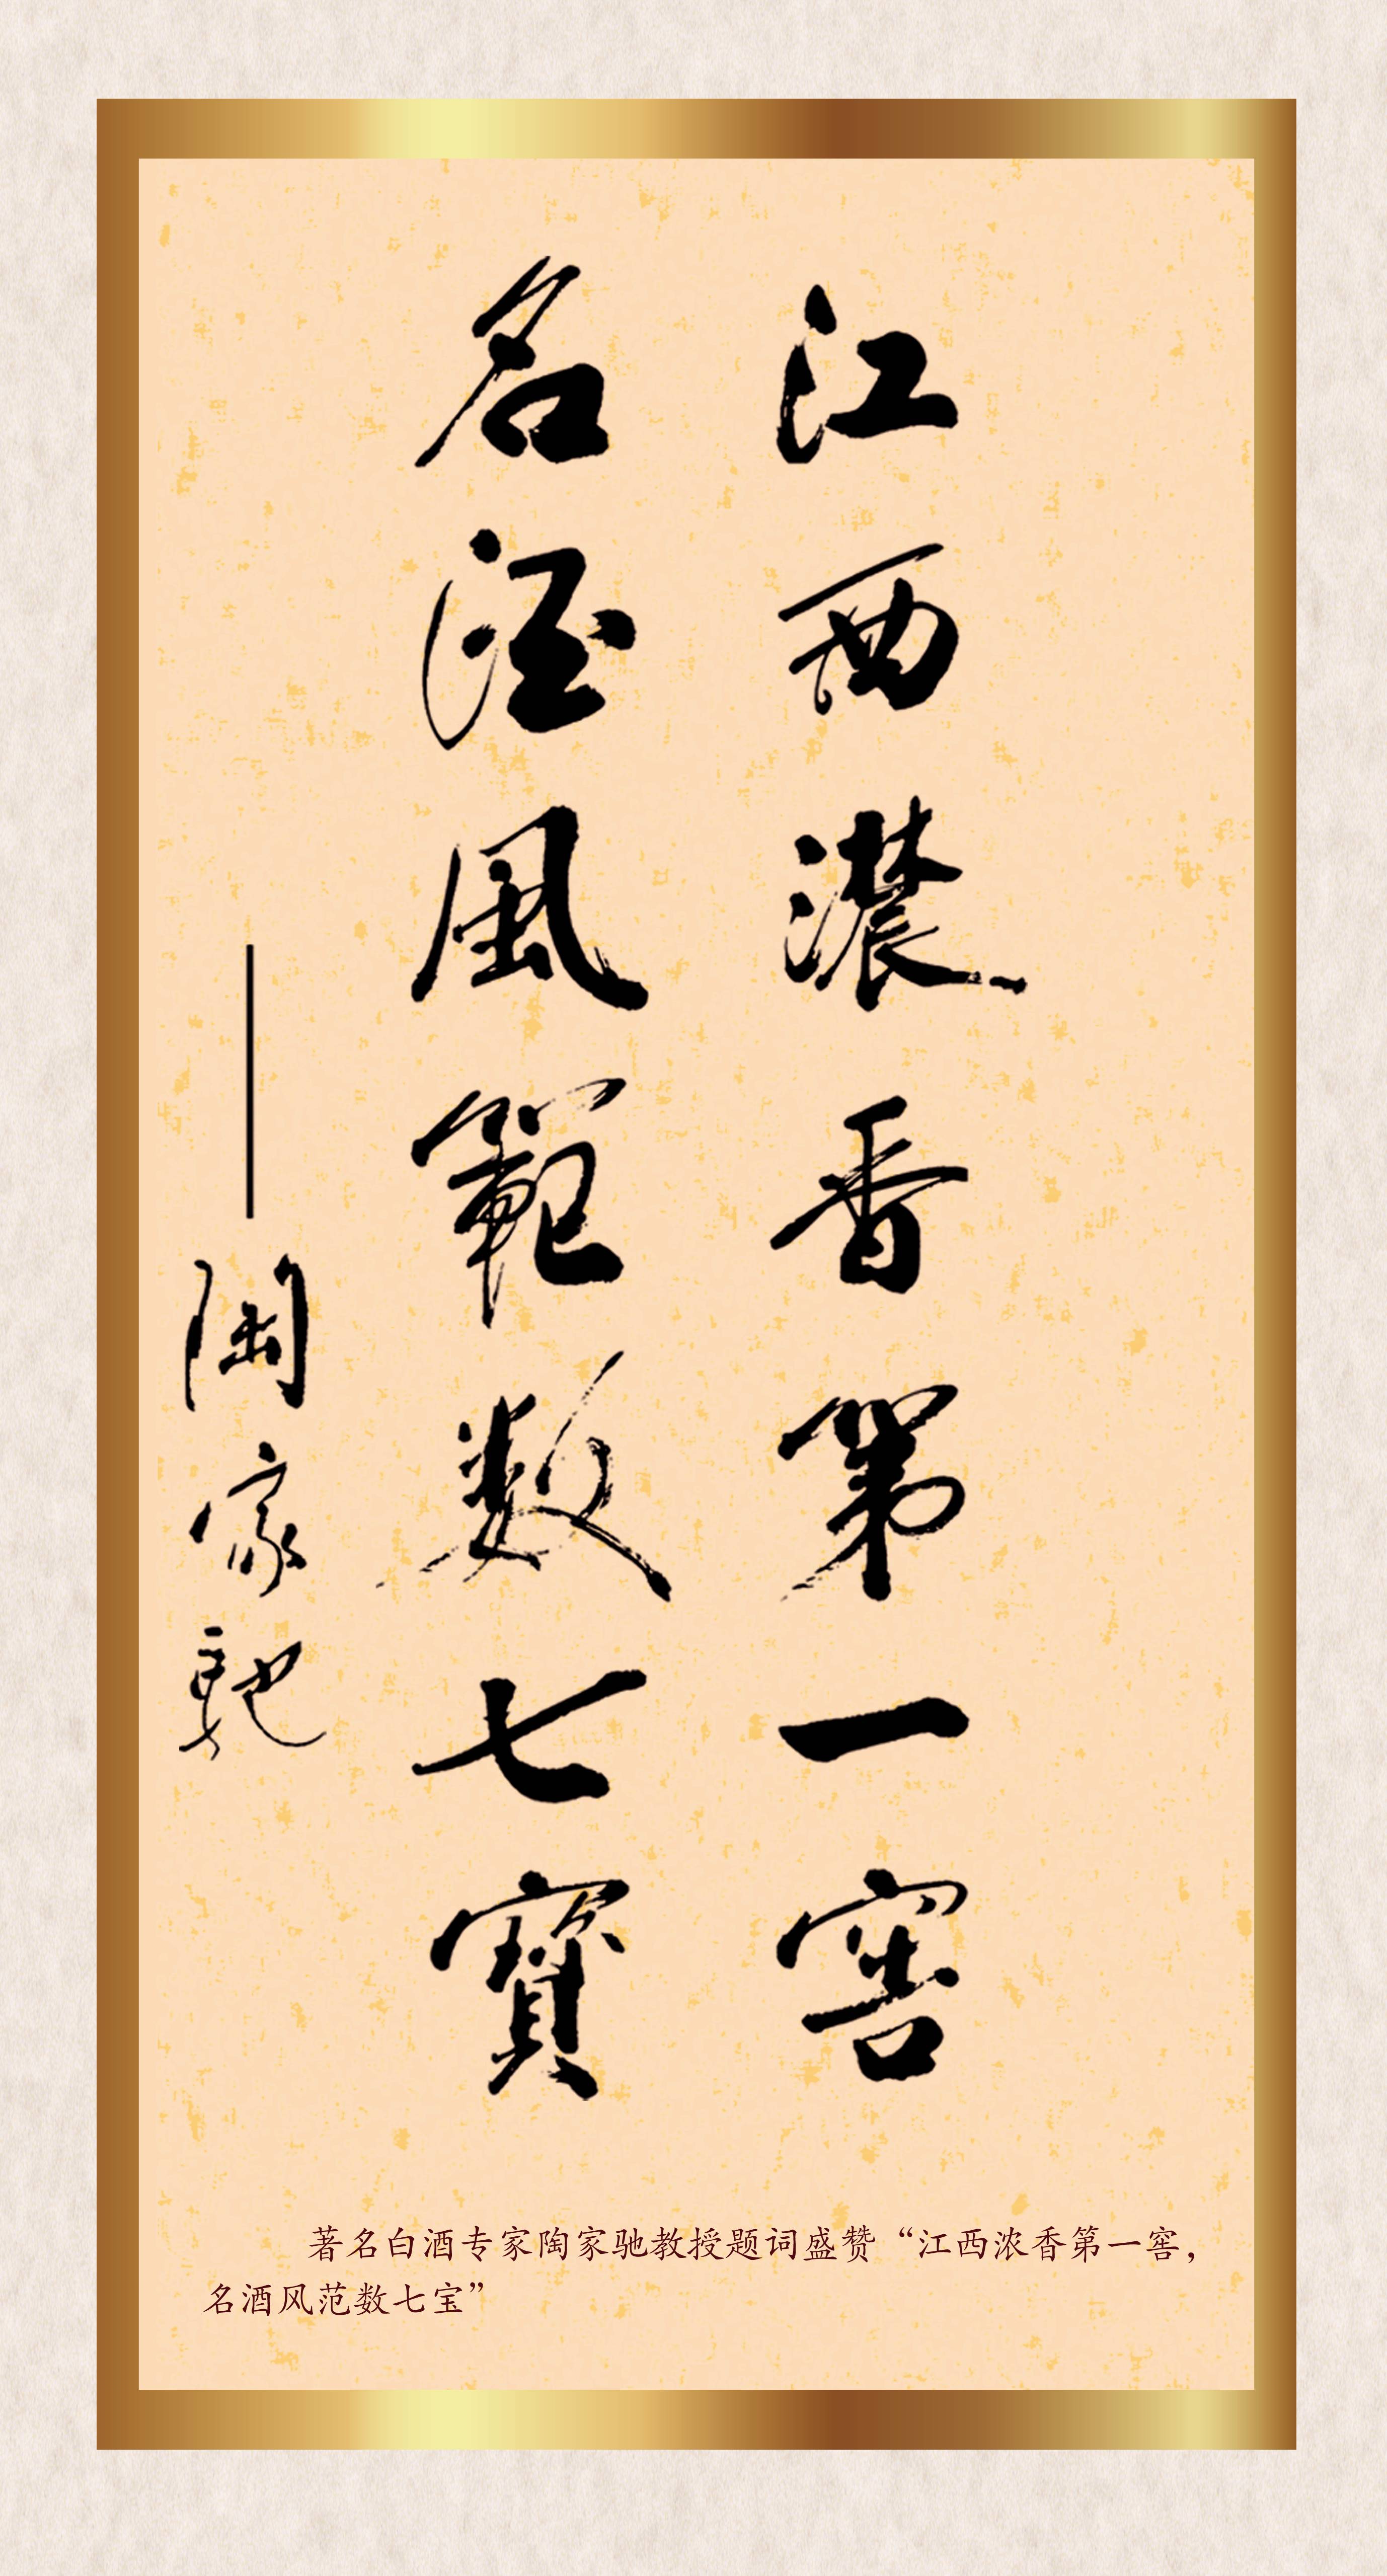 江西濃香第一窖
名酒風範数七寶
——陶家馳
著名白酒专家陶家驰教授题词盛赞“江西浓香第一窖，
名酒风范数七宝”